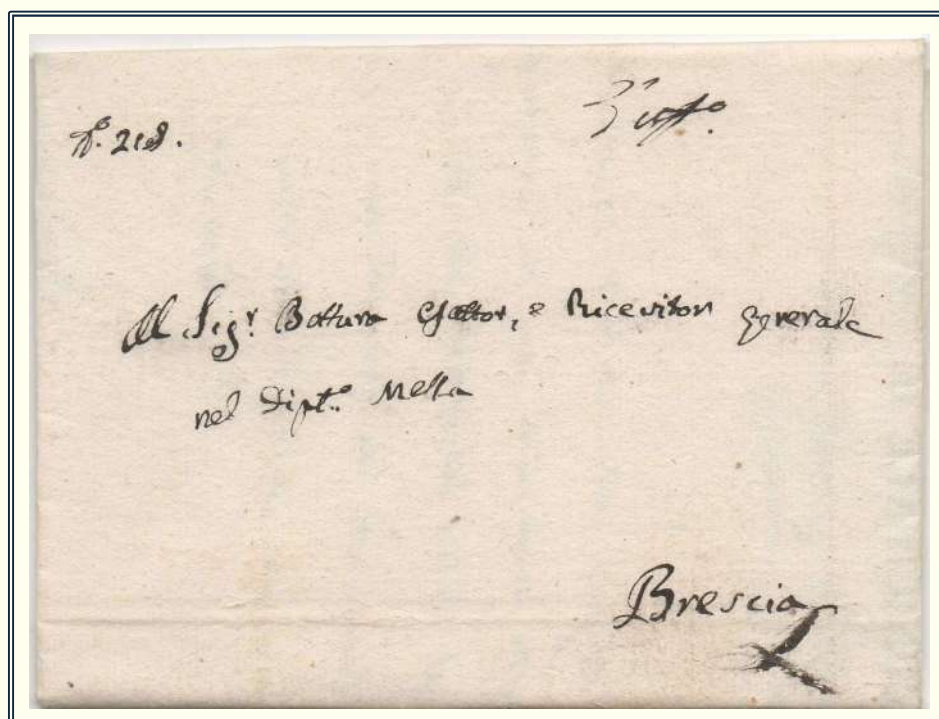 N.° 218.
D'uff.°
Al Sig.r Bottura Esattor, e Ricevitor generale
nel Dipt.° Mella
Brescia